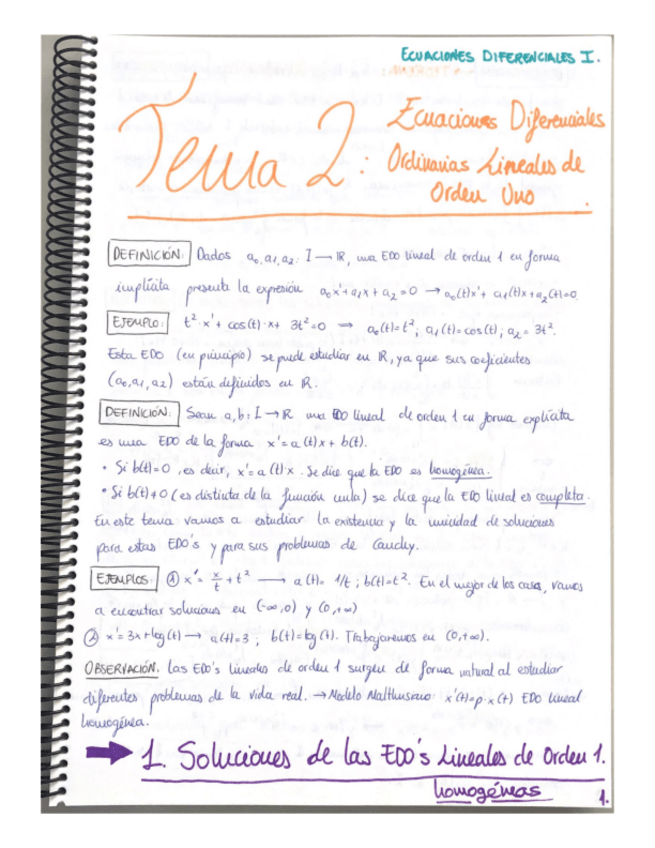 ECUACIONES DIFERENCIALES I.
Tema 2: Ecuaciones Diferenciales
Ordinarias Lineales de
Orden Uno
DEFINICIÓN: Dados a₀, a₁, a₂: I → ℝ, una EDO lineal de orden 1 en forma
implícita presenta la expresión a₀x'+a₁x+a₂=0 → a₀(t)x'+a₁(t)x+a₂(t)=0.
EJEMPLO: t²·x'+cos(t)·x+3t²=0 → a₀(t)=t²; a₁(t)=cos(t); a₂=3t².
Esta EDO (en principio) se puede estudiar en ℝ, ya que sus coeficientes
(a₀,a₁,a₂) están definidos en ℝ.
DEFINICIÓN: Sean a,b: I → ℝ una EDO lineal de orden 1 en forma explícita
es una EDO de la forma x'=a(t)x+b(t).
• Si b(t)=0, es decir, x'=a(t)·x. Se dice que la EDO es homogénea.
• Si b(t)≠0 (es distinta de la función nula) se dice que la EDO lineal es completa.
En este tema vamos a estudiar la existencia y la unicidad de soluciones
para estas EDO's y para sus problemas de Cauchy.
EJEMPLOS: ① x'= x/t + t² → a(t)= 1/t; b(t)=t². En el mejor de los casos, vamos
a encontrar soluciones en (-∞,0) y (0,+∞)
② x'=3x+log(t) → a(t)=3; b(t)=log(t). Trabajaremos en (0,+∞).
OBSERVACIÓN. Las EDO's lineales de orden 1 surgen de forma natural al estudiar
diferentes problemas de la vida real. → Modelo Malthusiano x'(t)=p·x(t) EDO lineal
homogénea.
➡ 1. Soluciones de las EDO's Lineales de Orden 1.
homogéneas
1.